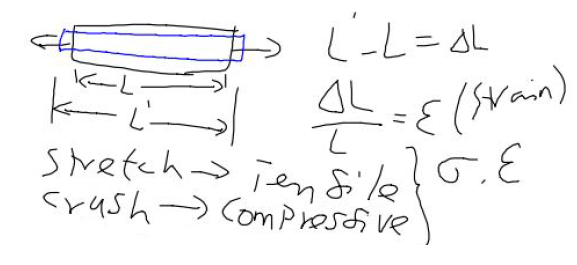 L
L'
L' - L = ΔL
ΔL/L = ε (strain)
stretch → Tensile
crush → compressive } σ, ε